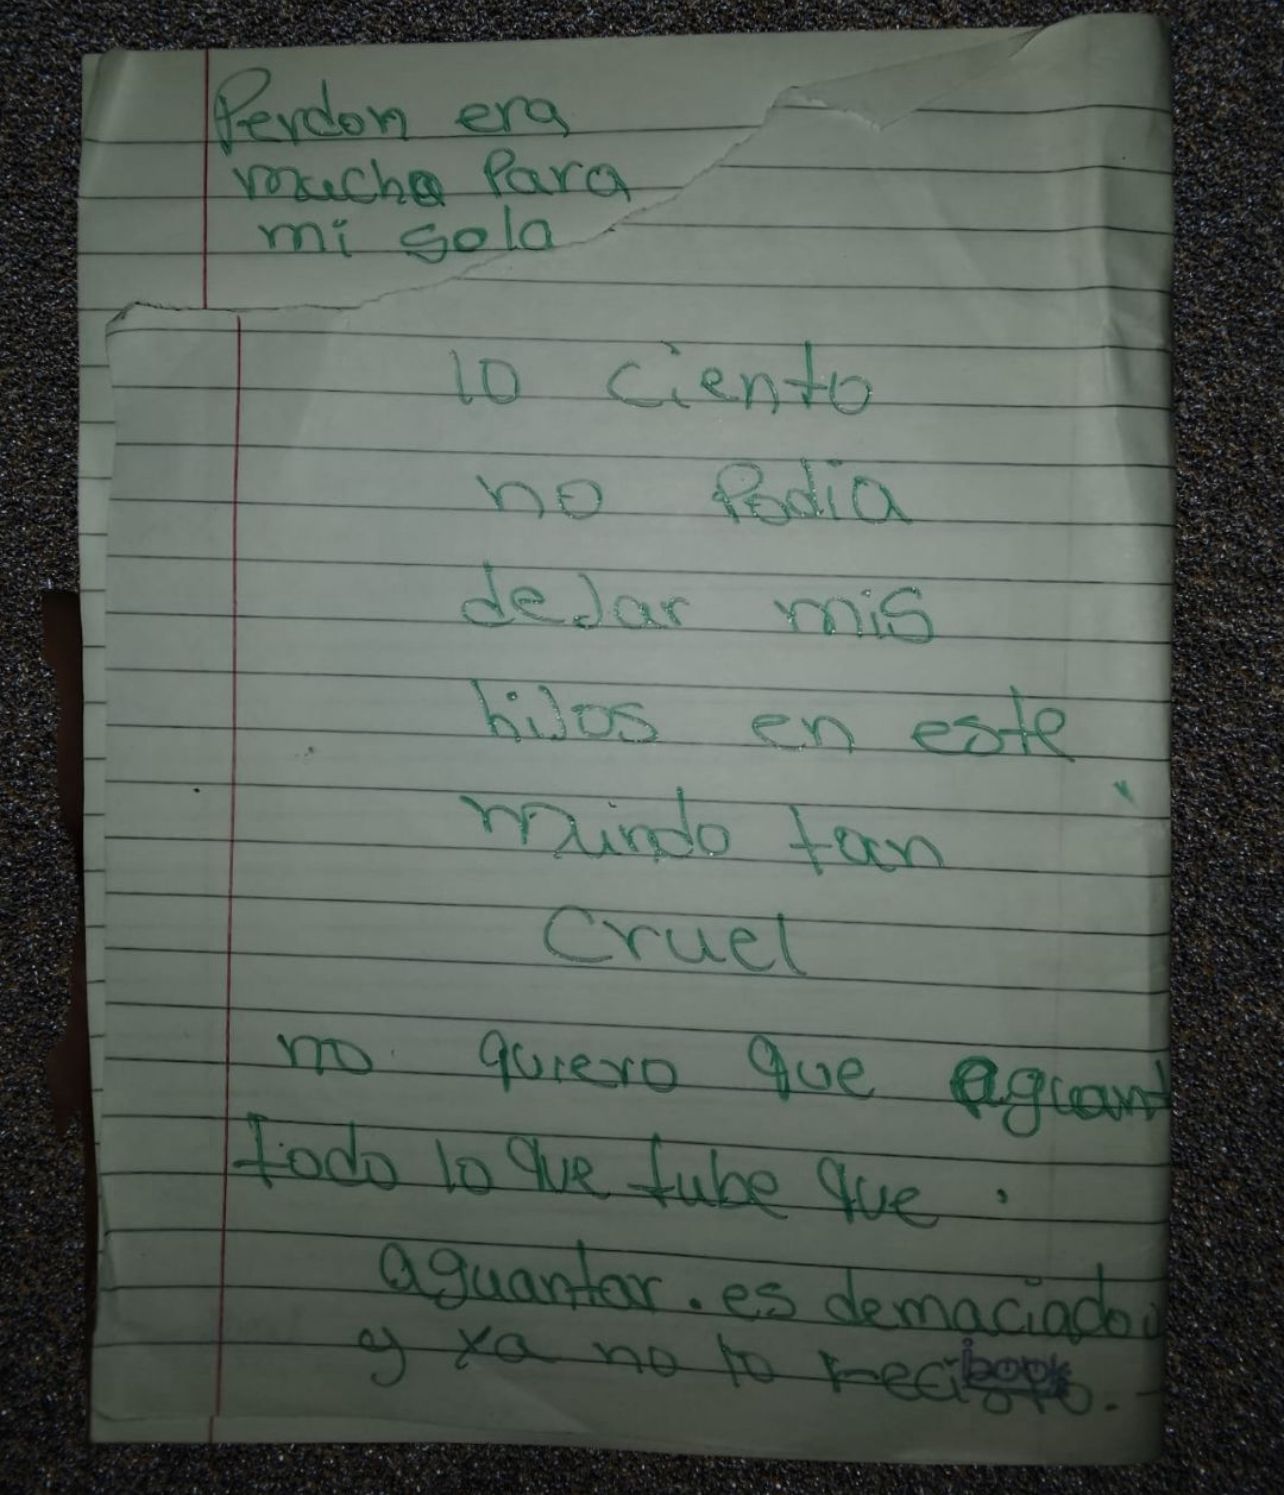 Perdon era
mucho para
mi sola
lo ciento
no Podia
deJar mis
hiJos en este
mundo tan
Cruel
no quiero que aguant
todo lo que tube que
aguantar. es demaciado
y ya no lo
book